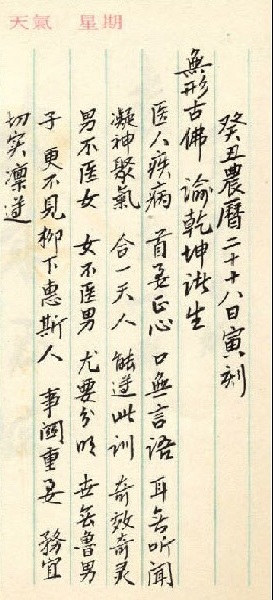 天氣 星期
癸丑農曆二十十八日寅刻
無形古佛 諭乾坤諸生
医人疾病 首要正心 口無言語 耳無听聞
凝神聚氣 合一天人 能遵此訓 奇效奇灵
男不医女 女不医男 尤要分明 世無魯男
子 更不見柳下惠斯人 事関重要 務宜
切实凛遵